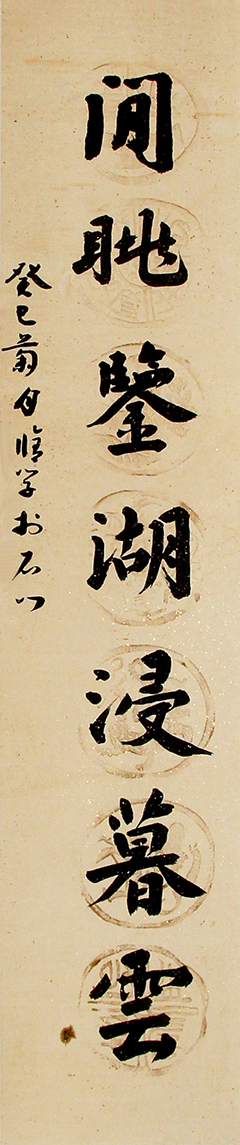 閒眺鑒湖浸暮雲
癸巳菊月學於石门